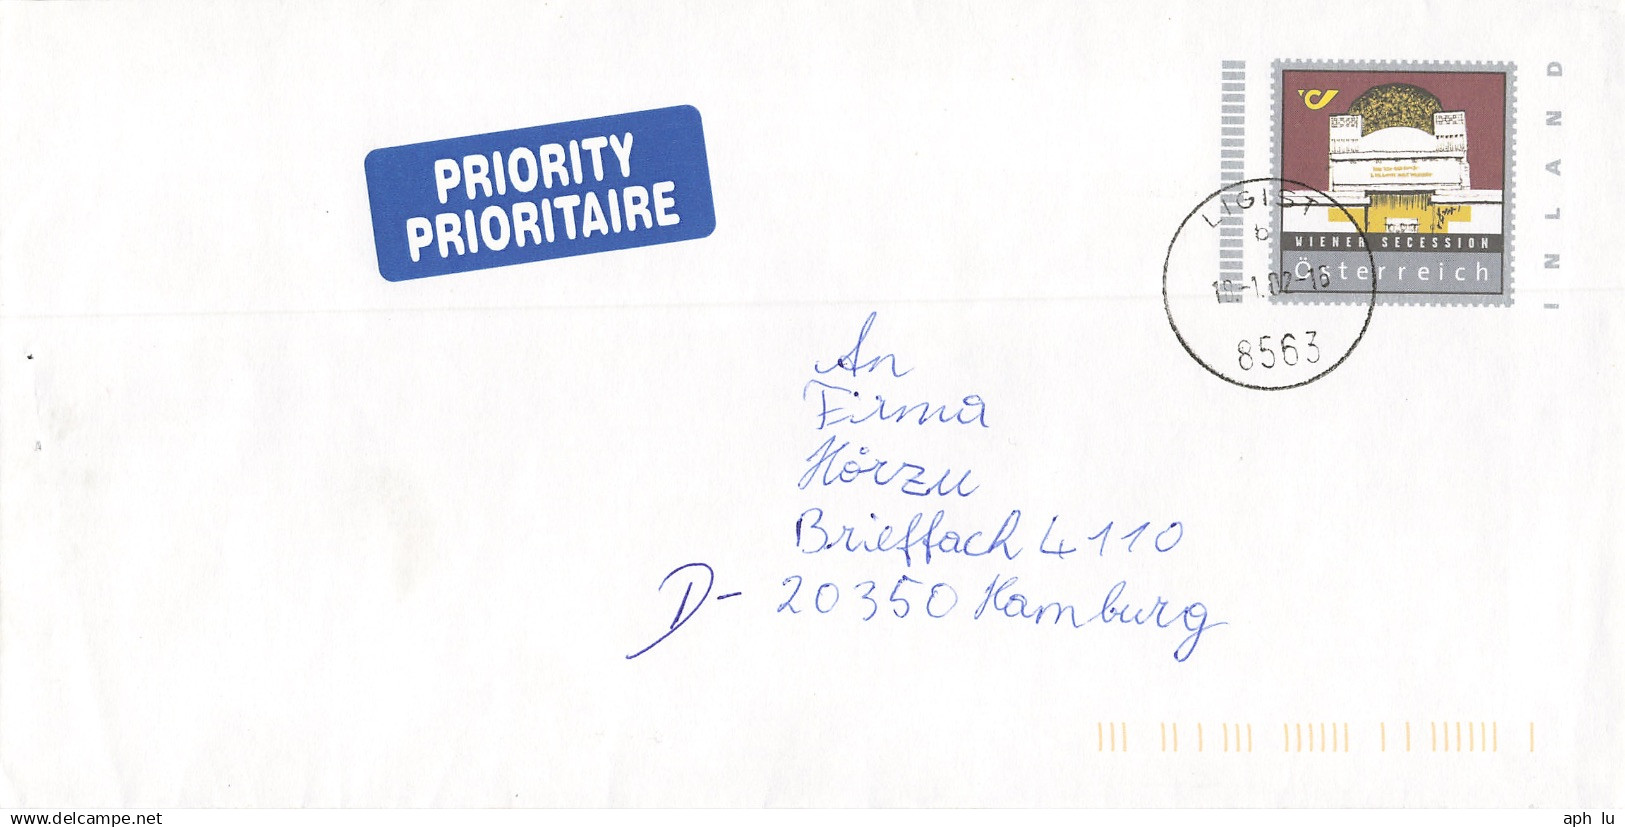 PRIORITY
PRIORITAIRE
INLAND
WIENER SECESSION
Österreich
LIGIST
b
-1.02-16
8563
An
Firma
Hörzu
Brieffach 4110
D- 20350 Hamburg
www.delcampe.net
aph lu